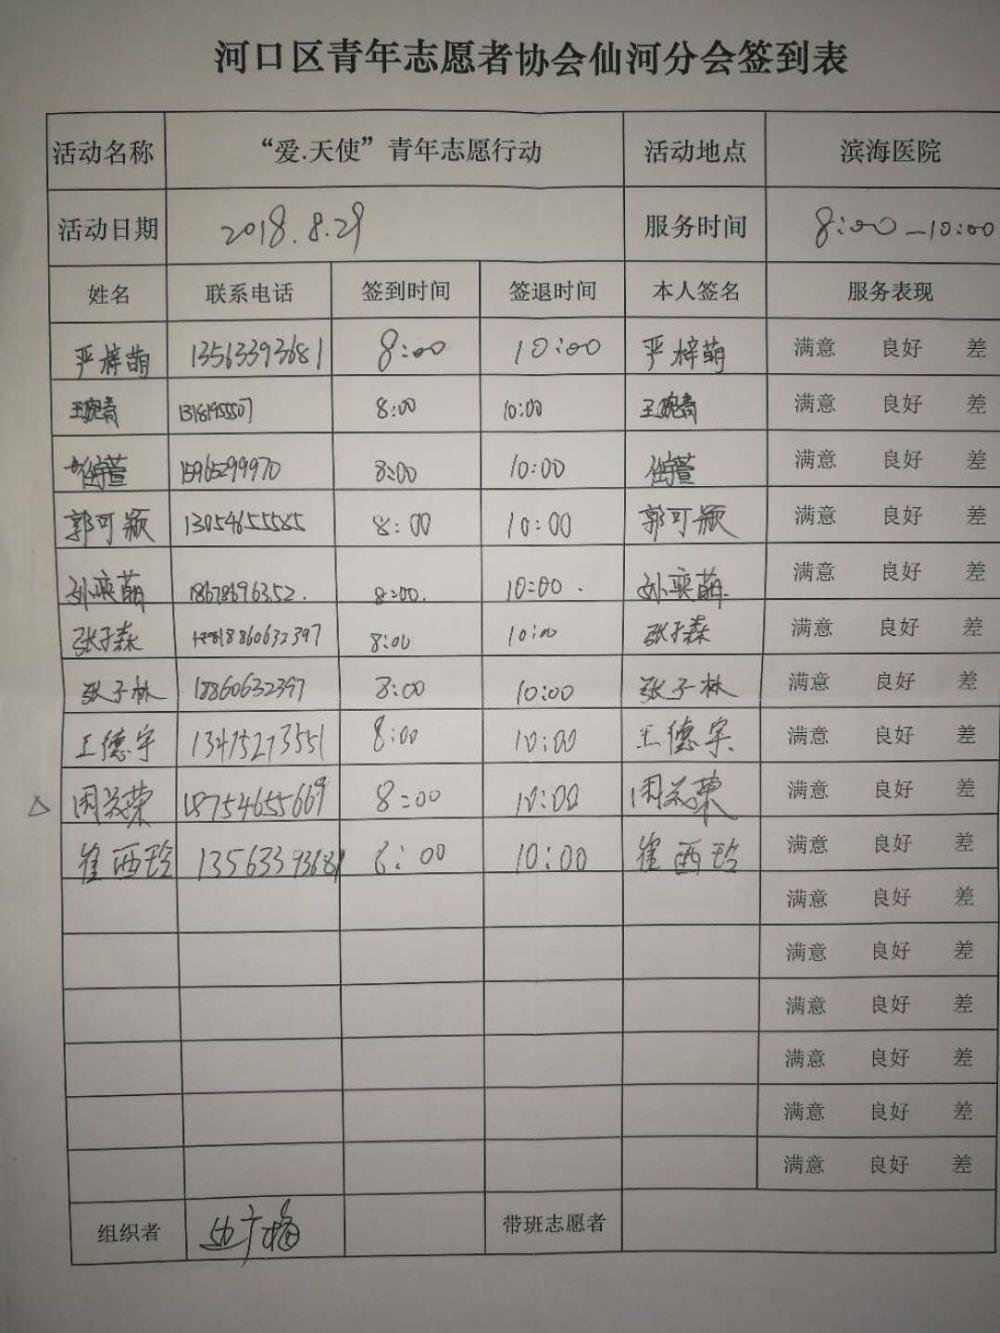 河口区青年志愿者协会仙河分会签到表
活动名称 “爱.天使”青年志愿行动 活动地点 滨海医院
活动日期 2018.8.29 服务时间 8:00—10:00
姓名 联系电话 签到时间 签退时间 本人签名 服务表现
严梓萌 13563393681 8:00 10:00 严梓萌 满意 良好 差
王婉青 8:00 10:00 王婉青 满意 良好 差
15965299970 8:00 10:00 满意 良好 差
郭可颖 13054655585 8:00 10:00 郭可颖 满意 良好 差
孙奕萌 18678696352. 8:00. 10:00. 孙奕萌 满意 良好 差
张子森 18860632397 8:00 10:00 张子森 满意 良好 差
张子林 18860632397 8:00 10:00 张子林 满意 良好 差
王德宇 13475273551 8:00 10:00 王德宇 满意 良好 差
△ 周益荣 18754655669 8:00 10:00 周益荣 满意 良好 差
崔西玲 13563393681 8:00 10:00 崔西玲 满意 良好 差
满意 良好 差
满意 良好 差
满意 良好 差
满意 良好 差
满意 良好 差
满意 良好 差
组织者 边广梅 带班志愿者